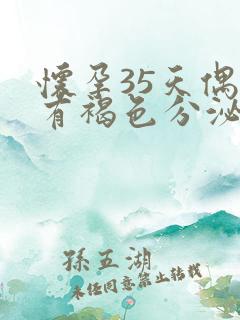 懷孕35天偶
有褐色分泌
孫五湖
未经同意禁止转载